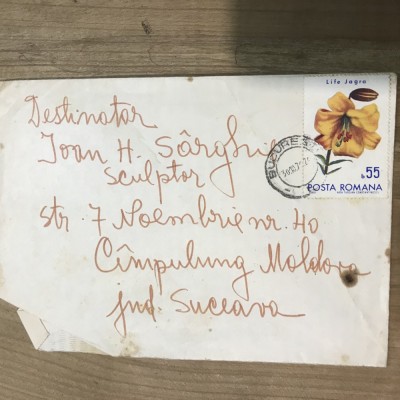 Destinator
Ioan H. Sârghie
sculptor
str. 7 Noembrie nr. 40
Cîmpulung Moldova
jud. Suceava
Life Jagra
55
POSTA ROMANA
BUCUREST